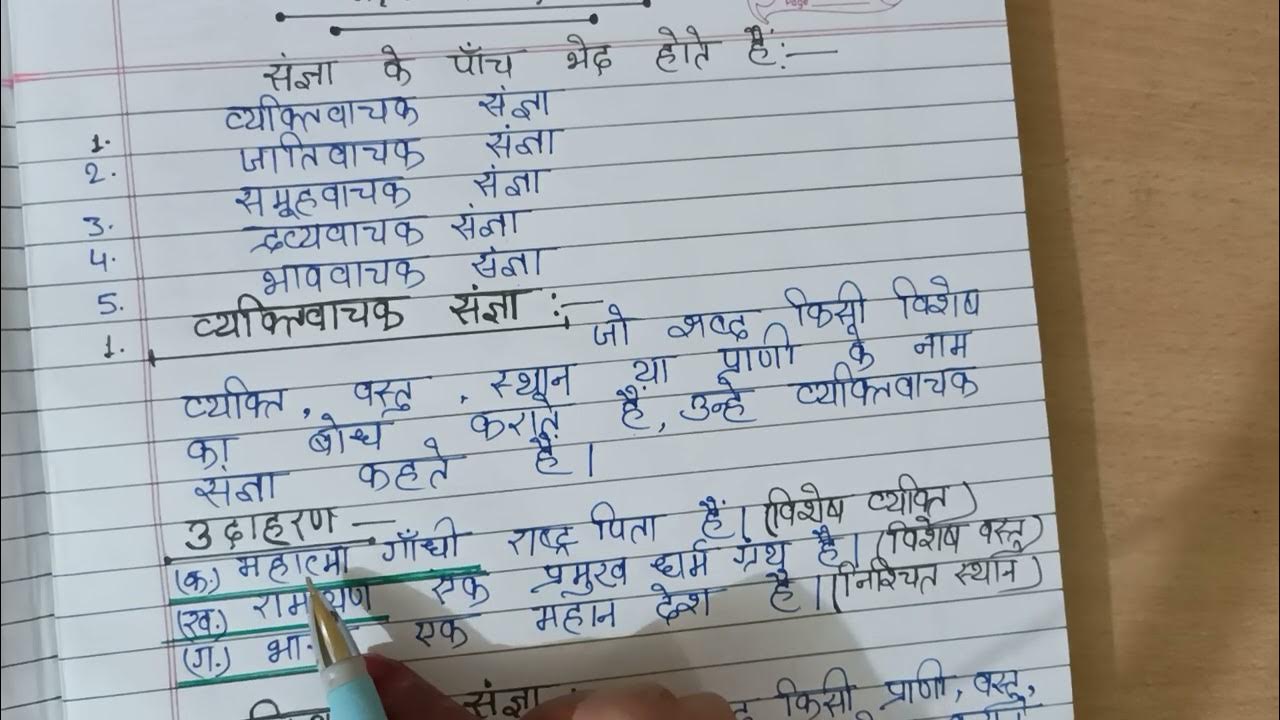 संज्ञा के पाँच भेद होते हैं:—
1. व्यक्तिवाचक संज्ञा
2. जातिवाचक संज्ञा
3. समूहवाचक संज्ञा
4. द्रव्यवाचक संज्ञा
5. भाववाचक संज्ञा
1. व्यक्तिवाचक संज्ञा :— जो शब्द किसी विशेष
व्यक्ति, वस्तु, स्थान या प्राणी के नाम
का बोध कराते हैं, उन्हे व्यक्तिवाचक
संज्ञा कहते हैं।
उदाहरण —
(क.) महात्मा गाँधी राष्ट्र पिता हैं। (विशेष व्यक्ति)
(ख.) रामायण एक प्रमुख धर्म ग्रंथ है। (विशेष वस्तु)
(ग.) एक महान देश है। (निश्चित स्थान)
संज्ञा : किसी प्राणी, वस्तु,